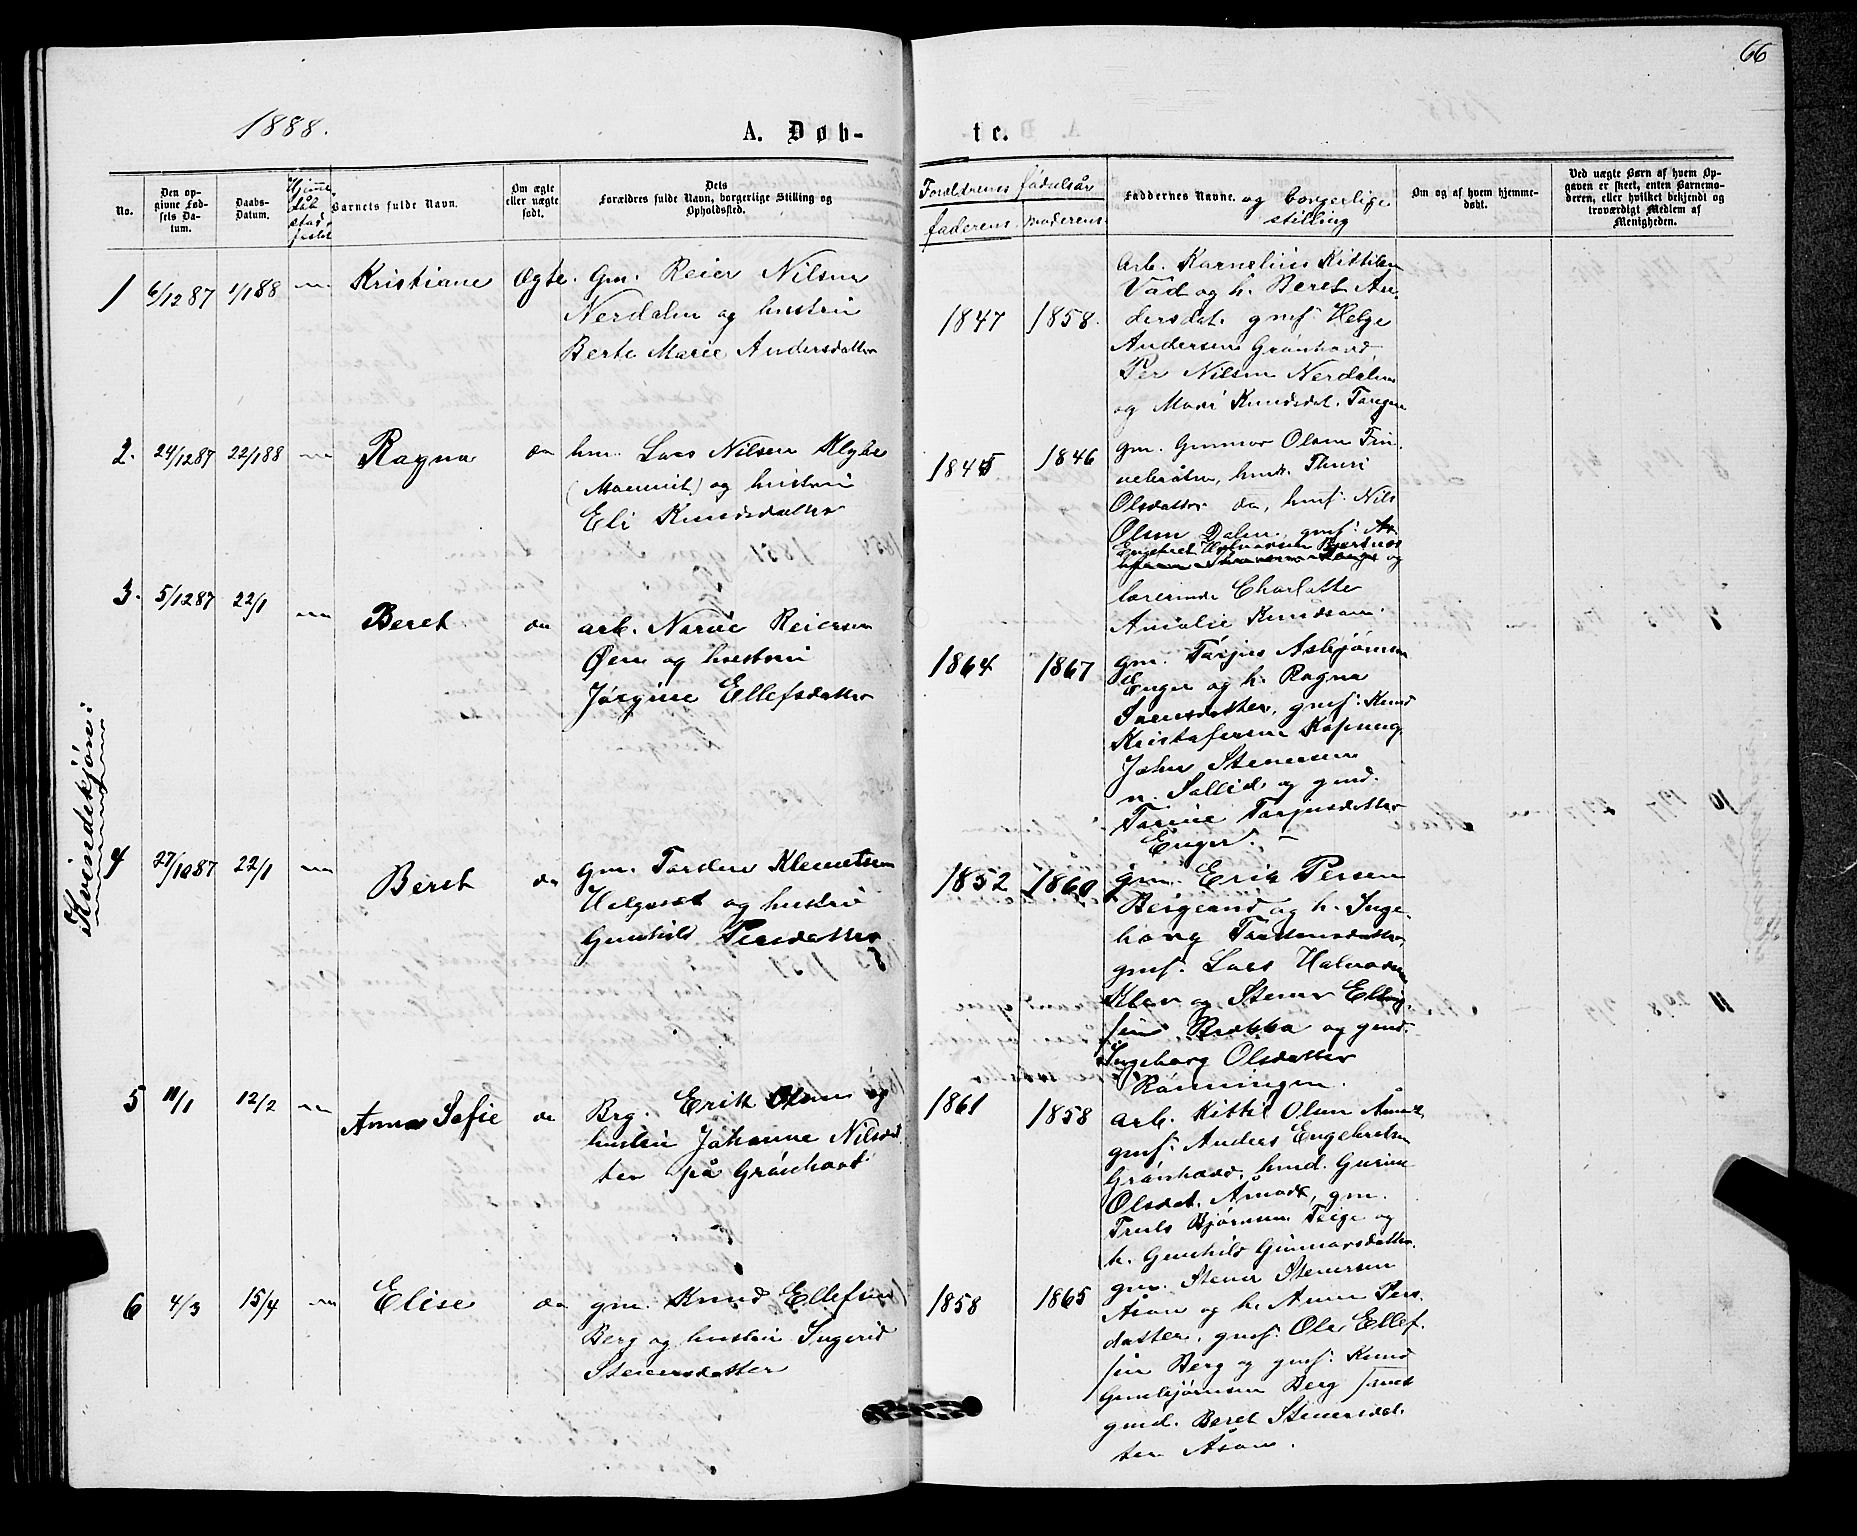 66
1888.
A. Døb-
te.
No.
Den op-
givne Fød-
sels Da-
tum.
Daabs-
Datum.
Barnets fulde Navn.
Om ægte
eller uægte
født.
Dets
Forældres fulde Navn, borgerlige Stilling og
Opholdssted.
Forældrenes fødselsår
faderens
moderens
Faddernes Navne. og borgerlige
stilling
Om og af hvem hjemme-
døbt.
Ved uægte Børn af hvem Op-
gaven er skeet, enten Barnemo-
deren, eller hvilket bekjendt og
troværdigt Medlem af
Menigheden.
Kvindekjön:
1
6/12 87
1/1 88
Kristiane
Ægte.
Gm. Reier Nilsen
Nerdalen og hustru
Berte Marie Andersdatter
1847
1858.
Arb. Kornelius Kittilsen
Vad og h. Beret An-
dersdat. gmf. Helge
Andersen Grönhovd,
Per Nilsen Nerdalen
og Mari Knudsdat.
2.
24/12 87
22/1 88
Ragna
do
hm. Lars Nilsen
og hustru
Eli Knudsdatter
1845
1846
gm. Gunnar Olsen
Thuri
Olsdatter do, hmf. Nils
Olsen Dalen, gmf.
og
lærerinde Charlotte
Amalie Knudsen.
3.
5/12 87
22/1
Beret
do
arb. Narve Reiersen
Øen og hustru
Jörgine Ellefsdatter
1864
1867
gm. Torjus Asbjörnsen
Enger og h. Ragna
Svensdatter, gmf. Knud
Kristofersen
John Stenersen
n. Sollid og gmd.
Torine Torjusdatter
Enger.
4
27/10 87
22/1
Beret
do
gm. Torsten Klemetsen
Helgeset og hustru
Gunhild Persdatter
1852
1860
gm. Erik Persen
Bergsund og h. Inge-
borg Torstensdatter,
gmf. Lars Halvorsen
og Stener Elling-
sen Brække og gmd.
Ingeborg Olsdatter
Rönningen.
5
11/1
12/2
Anna Sofie
do
Brg. Erik Olsen og
hustru Johanne Nilsdat
ter på Grönhovd
1861
1858
arb. Kittil Olsen Åmot
gmf. Anders Engebretsen
Grönhovd, hmd. Gurine
Olsdat. Åmot, gm.
Truls Björnsen Teige og
h. Gunhild Gunnarsdatter.
6
4/3
15/4
Elise
do
gm. Knud Ellefsen
Berg og hustru Ingerid
Stenersdatter
1858
1865
gm. Stener Stenersen
Åsen og h. Anne Pers-
datter, gmf. Ole Ellef-
sen Berg og gmf. Knud
Gunbjörnsen Berg samt
gmd. Beret Stenersdat-
ter Åsen.